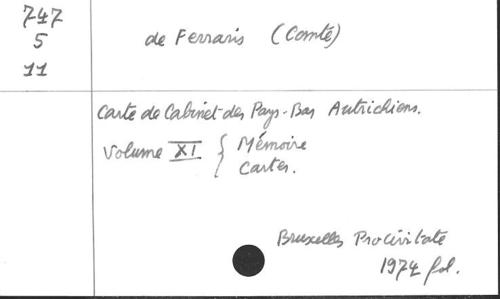 747
5
11
de Ferraris (Comté)
Carte de Cabinet des Pays-Bas Autrichiens.
Volume XI { Mémoire
Cartes.
Bruxelles Procivitate
1974 fol.